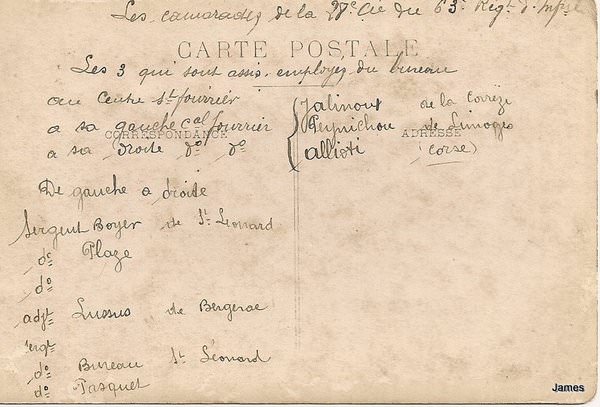 Les camarades de la 28e Cie du 63e Régt d'Infie
CARTE POSTALE
Les 3 qui sont assis. employés du bureau
au Centre St fourrier
a sa gauche cal fourrier
a sa droite do do
Jalinoux de la Corrèze
Peynichou de Limoges
allioti (Corse)
CORRESPONDANCE
ADRESSE
De gauche a droite
Sergent Boyer de St Léonard
do Plaze
do
adjt Lussus de Bergerac
sergt
do Bureau St Léonard
do Pasquet
James